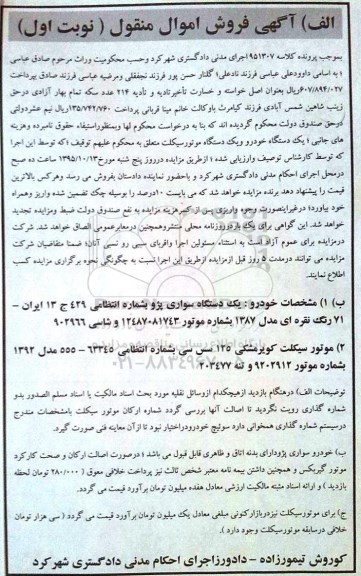 الف) آگهی فروش اموال منقول ( نوبت اول )
بموجب پرونده کلاسه ۹۵۱۳۰۷اجرای مدنی دادگستری شهرکرد وحسب محکومیت وراث مرحوم صادق عباسی
؛ به اسامی داوودعلی عباسی فرزند نادعلی؛ گلنار حسن پور فرزند نجفقلی ومرضیه عباسی فرزند صادق بپرداخت
۶۰۷/۸۹۴/۰۲۷ریال بعنوان اصل خواسته و خسارت تأخیرتادیه و تأدیه ۲۱۴ عدد سکه تمام بهار آزادی درحق
زینب شاهین شمس آبادی فرزند کیامرث باوکالت خانم مینا قربانی پرداخت ۱۳۵/۷۴۲/۷۶۰ریال نیم عشردولتی
درحق صندوق دولت محکوم گردیده اند که بنا به درخواست محکوم لها وبمنظوراستیفاء حقوق نامبرده وهزینه
های جانبی ؛ یک دستگاه خودرو ویک دستگاه موتورسیکلت متعلق به محکوم علیهم توقیف ؛که توسط این اجرا
که توسط کارشناس توصیف وارزیابی شده ؛ ازطریق مزایده درروز پنج شنبه مورخ۱۳۹۵/۱۰/۱۳ ساعت ده صبح
درمحل اجرای احکام مدنی دادگستری شهرکرد و باحضور نماینده دادستان بفروش می رسد وهرکس بالاترین
قیمت را پیشنهاد دهد برنده مزایده خواهد شد که می بایست ۱۰درصد را بوسیله چک تضمین شده واریز وهمراه
خود بیاورد؛ درغیراینصورت وجوه واریزی پس از کسرهزینه مزایده به نفع صندوق دولت ضبط ومزایده تجدید
خواهد شد. این گواهی برای یک بار درروزنامه محلی منتشروهمچنین درمعابرعمومی الصاق خواهد شد. شرکت
درمزایده برای عموم آزاد است به استثناء مسئولین اجرا واقربای سببی رو نسبی آنان؛ ضمنا متقاضیان شرکت
مزایده می توانند درمدت ۵ روز قبل ازمزایده ازطریق این اجرا نسبت به چگونگی نحوه برگزاری مزایده کسب
اطلاع نمایند.
ب) ۱) مشخصات خودرو : یک دستگاه سواری پژو بشماره انتظامی ۴۲۹ ج ۱۳ ایران -
۷۱ رنگ نقره ای مدل ۱۳۸۷ بشماره موتور ۱۲۴۸۷۰۸۱۷۴۳ و شاسی ۹۰۲۹۶۶
۲) موتور سیکلت کویرمشکی ۱۲۵ سی سی بشماره انتظامی ۶۳۳۴۵ - ۵۵۵ مدل ۱۳۹۲
بشماره موتور ۹۲۰۲۹۱۲ و تنه ۲۰۳۴۷۷
توضیحات الف) درهنگام بازدید ازهیچکدام ازوسائل نقلیه مورد بحث اسناد مالکیت یا اسناد مسلم الصدور بدو
شماره گذاری رویت نگردید تا اصالت آنها بررسی گردد شماره ارکان موتور سیکلت بامشخصات مندرج
درسیستم شماره گذاری همخوانی دارد سوئیچ خودرودراختیار نبود تا ازآن معاینه فنی صورت گیرد.
ب) خودرو سواری پژودارای بدنه اتاق و ظاهری قابل قبول می باشد ؛ درصورت اصالت ارکان و صحت کارکرد
موتور گیربکس و همچنین داشتن بیمه نامه معتبر شخص ثالث نیز پرداخت خلافی معوق ( ۲۸۰/۰۰۰ تومان لحظه
بازدید ) و ارائه اسناد مثبته مالکیت ارزشی معادل هفده میلیون تومان برآورد قیمت می گردد.
ج) برای موتورسیکلت نیزدربازارکنونی مبلغی معادل یک میلیون تومان برآورد قیمت می گردد ( سی هزار تومان
خلافی درسابقه موتورسیکلت وجود دارد ).
کوروش تیمورزاده - دادورزاجرای احکام مدنی دادگستری شهرکرد
۰۲۱-۸۸۳۴۹۶۷۰-۵